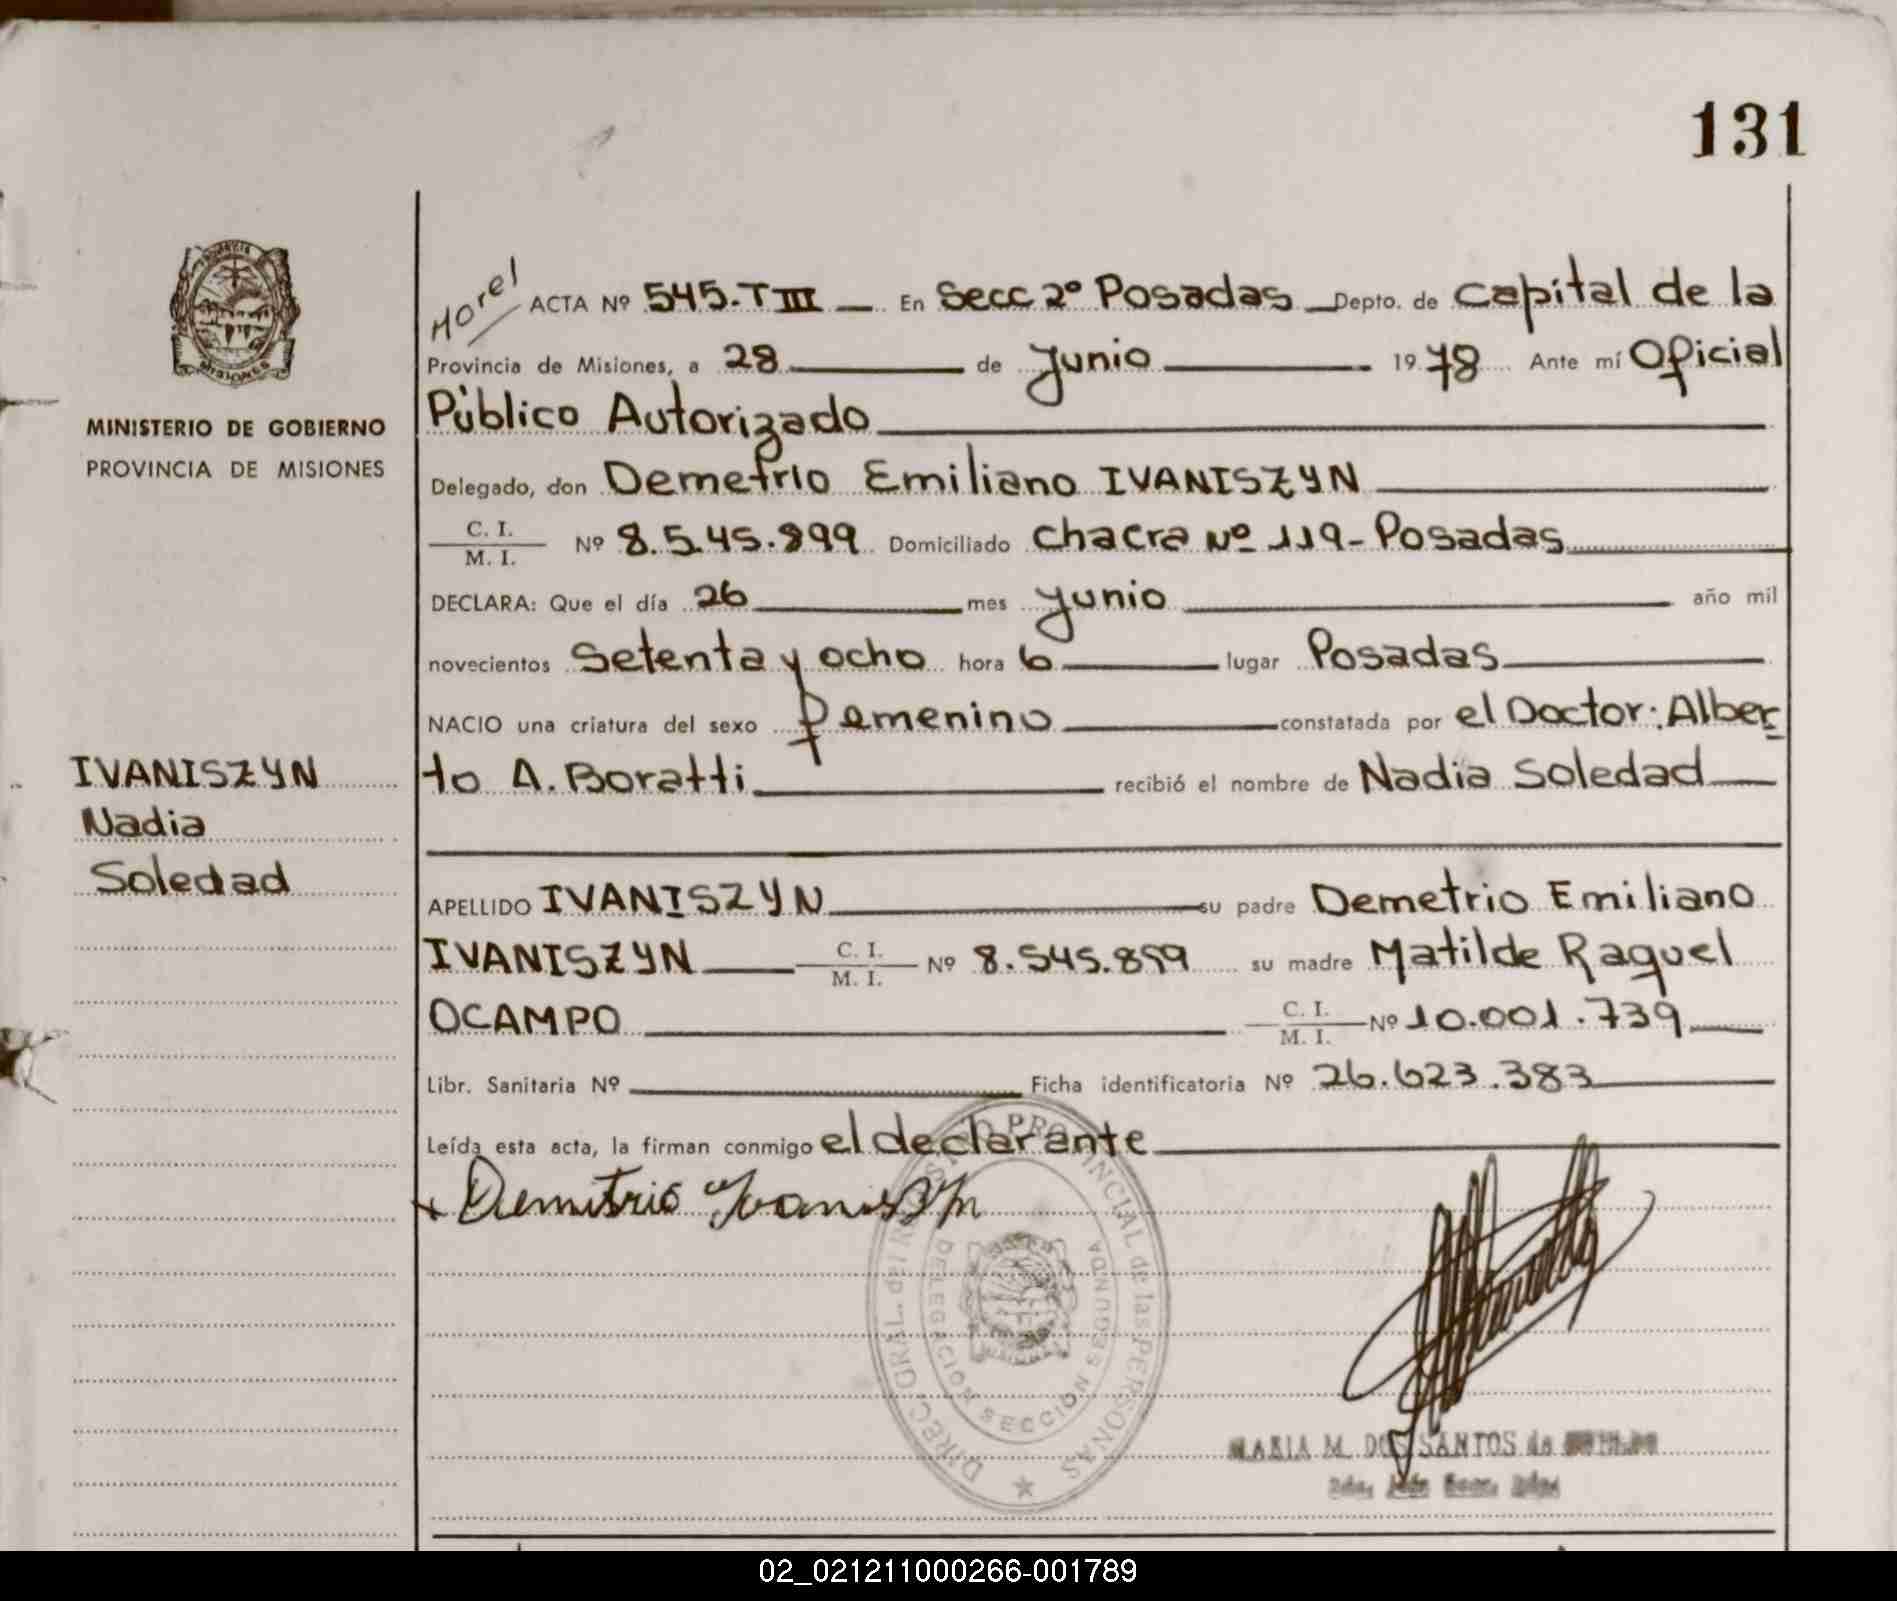 131
MINISTERIO DE GOBIERNO
PROVINCIA DE MISIONES
IVANISZYN
Nadia
Soledad
Horel ACTA Nº 545.T III — En Secc 2º Posadas Depto. de Capital de la
Provincia de Misiones, a 28 de Junio 1978 Ante mí Oficial
Público Autorizado
Delegado, don Demetrio Emiliano IVANISZYN
C. I.
M. I. Nº 8.545.899 Domiciliado Chacra Nº 119- Posadas
DECLARA: Que el día 26 mes Junio año mil
novecientos Setenta y ocho hora 6 lugar Posadas
NACIO una criatura del sexo femenino constatada por el Doctor: Alber
to A. Boratti recibió el nombre de Nadia Soledad
APELLIDO IVANISZYN su padre Demetrio Emiliano
IVANISZYN C. I. M. I. Nº 8.545.899 su madre Matilde Raquel
OCAMPO C. I. M. I. Nº 10.001.739
Libr. Sanitaria Nº Ficha identificatoria Nº 26.623.383
Leída esta acta, la firman conmigo el declarante
DIREC. GRAL. del REGISTRO PROVINCIAL de las PERSONAS
DELEGACION SECCION SEGUNDA
MARIA M. DOS SANTOS de
02_021211000266-001789